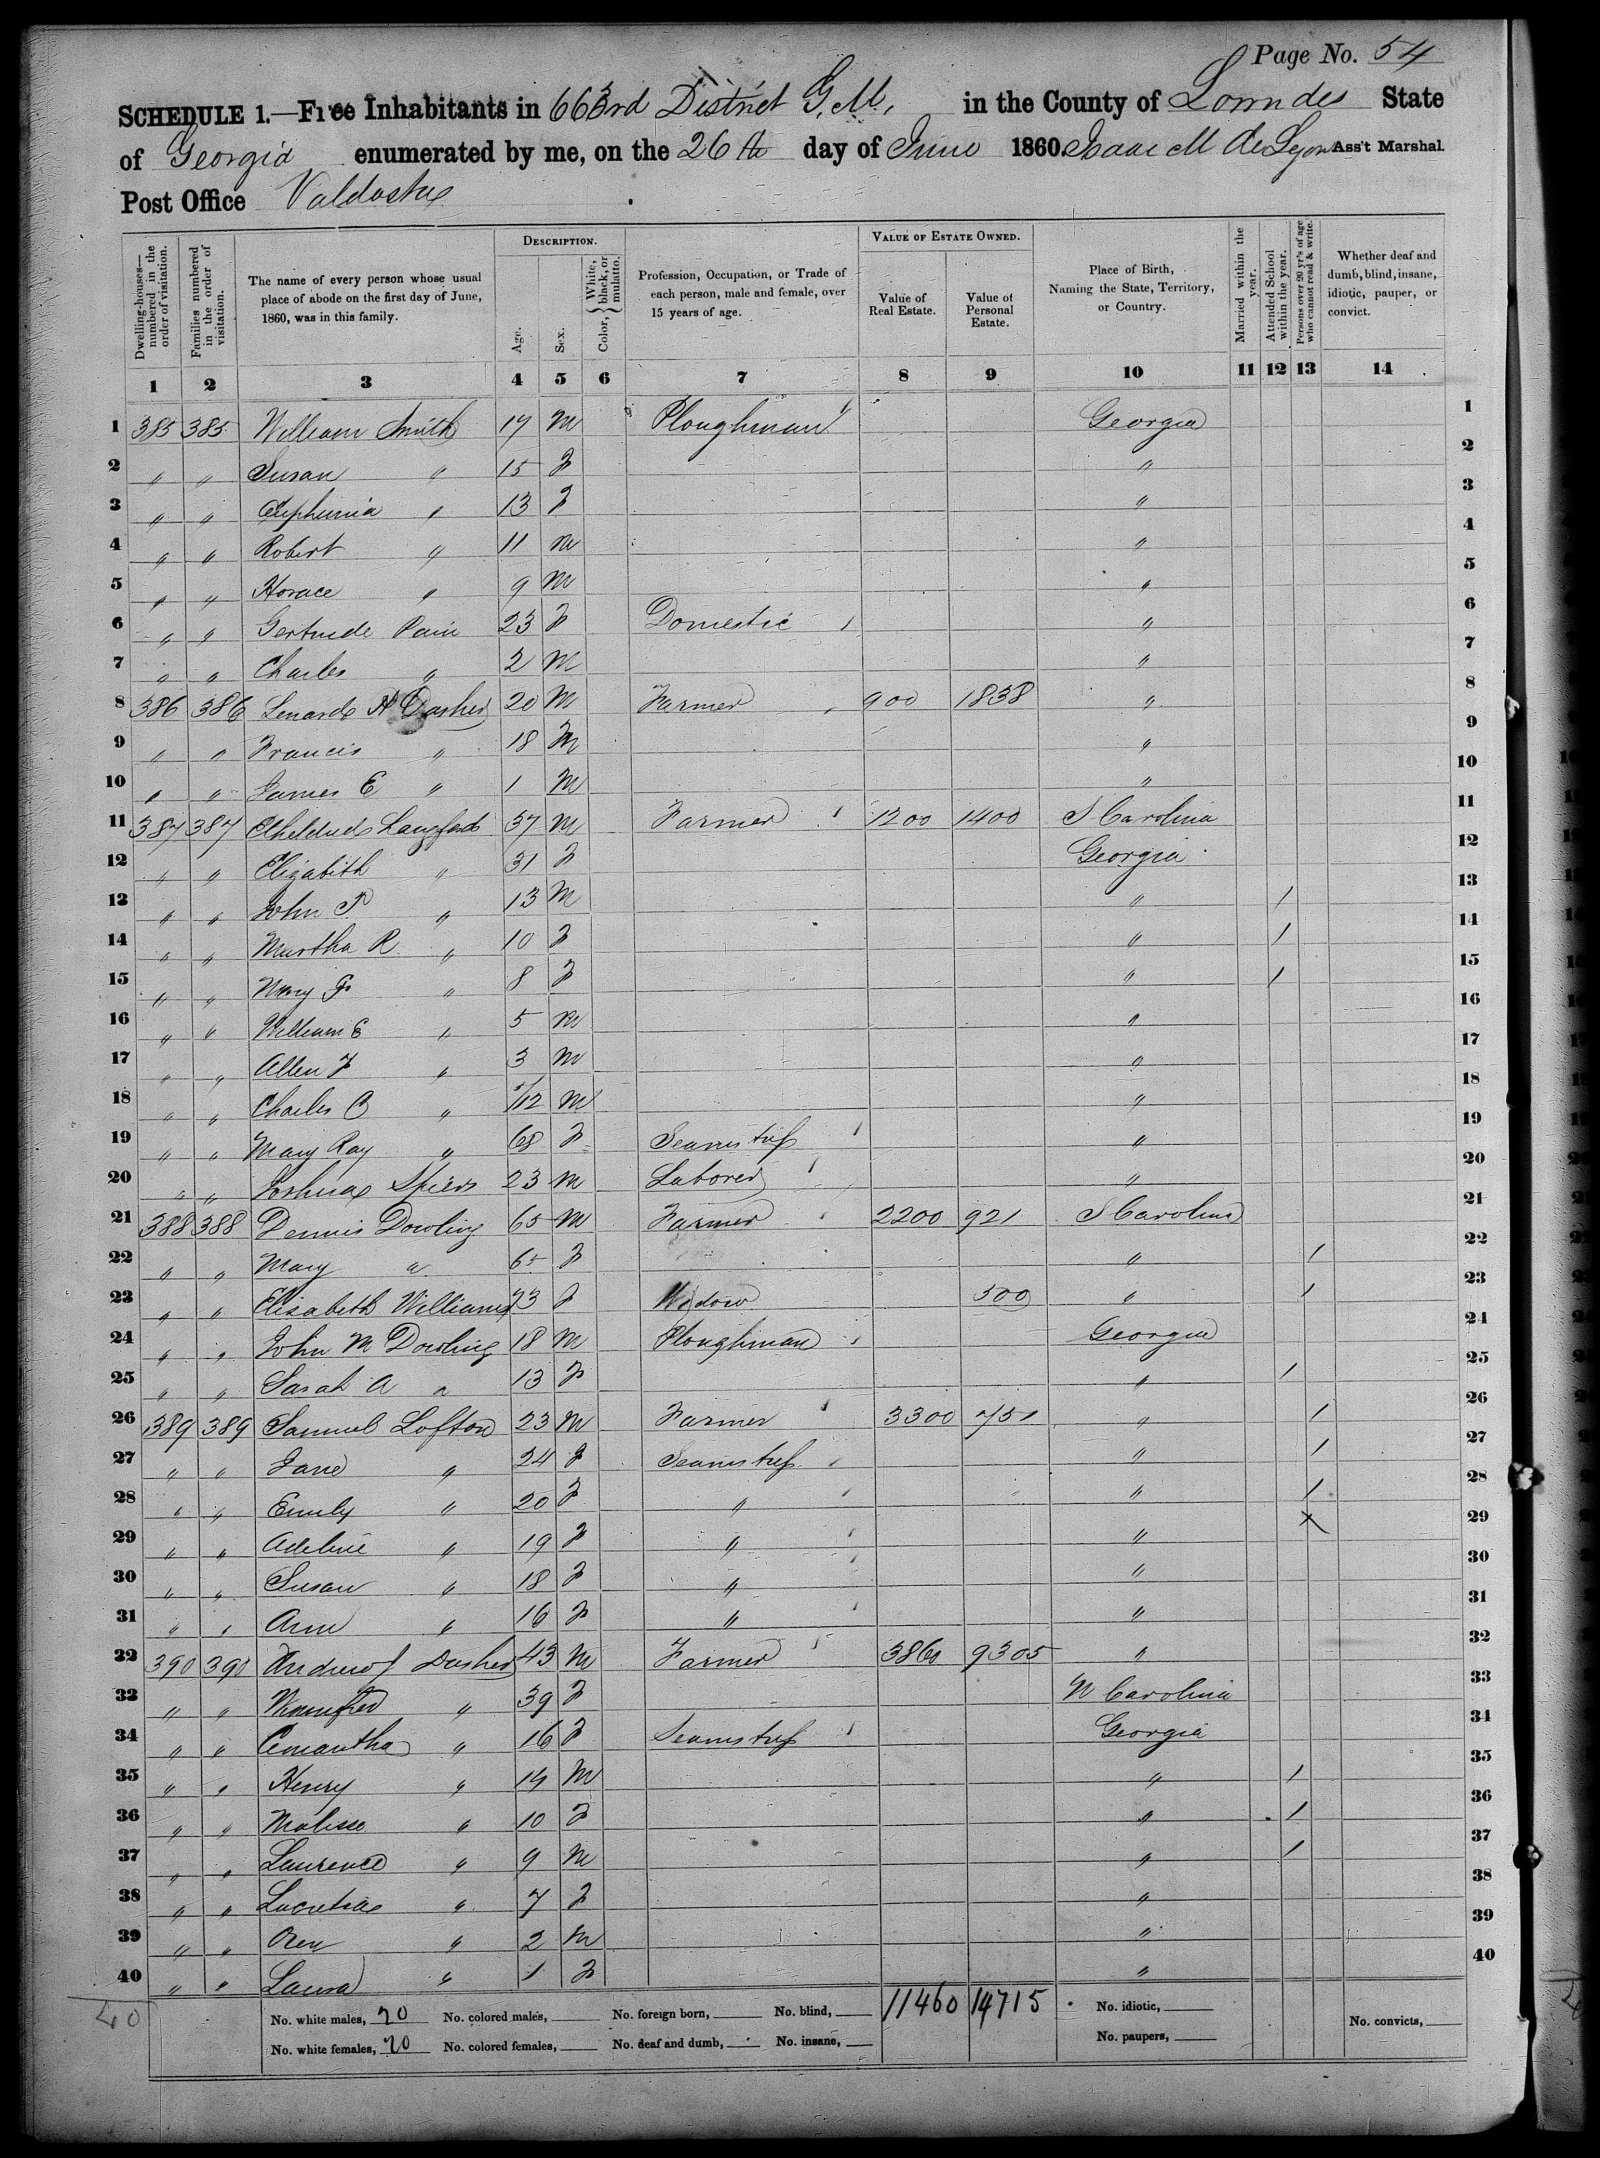 Page No. 54
SCHEDULE 1.—Free Inhabitants in 663rd District G.M. in the County of Lowndes State
of Georgia enumerated by me, on the 26th day of June 1860. Isaac M DeLyon Ass't Marshal.
Post Office Valdosta
Dwelling-houses—numbered in the order of visitation.
Families numbered in the order of visitation.
The name of every person whose usual place of abode on the first day of June, 1860, was in this family.
DESCRIPTION.
Age.
Sex.
Color, { White, black, or mulatto.
Profession, Occupation, or Trade of each person, male and female, over 15 years of age.
VALUE OF ESTATE OWNED.
Value of Real Estate.
Value of Personal Estate.
Place of Birth, Naming the State, Territory, or Country.
Married within the year.
Attended School within the year.
Persons over 20 yr's of age who cannot read & write.
Whether deaf and dumb, blind, insane, idiotic, pauper, or convict.
1 2 3 4 5 6 7 8 9 10 11 12 13 14
1 385 385 William Smith 17 M Ploughman Georgia 1
2 " " Susan " 15 F " 2
3 " " " 13 F " 3
4 " " Robert " 11 M " 4
5 " " Horace " 9 M " 5
6 " " Gertrude Pain 23 F Domestic " 6
7 " " Charles " 2 M " 7
8 386 386 Lenard H Dasher 20 M Farmer 900 1838 " 8
9 " " Francis " 18 " 9
10 " " James E " 1 M " 10
11 387 387 Langford 57 M Farmer 1200 1400 S Carolina 11
12 " " Elizabeth " 31 F Georgia 12
13 " " John P " 13 M " / 13
14 " " Martha R " 10 F " / 14
15 " " Mary " 8 F " / 15
16 " " William E " 5 M " 16
17 " " Allen F " 3 M " 17
18 " " Charles C " /12 M " 18
19 " " Mary Ray " 68 F Seamstress " 19
20 " " Joshua Spiers 23 M Laborer " 20
21 388 388 Dennis Dowling 65 M Farmer 2200 921 S Carolina 21
22 " " Mary " 65 F " / 22
23 " " Elisabeth Williams 23 F Widow 500 " / 23
24 " " John M Dowling 18 M Ploughman Georgia 24
25 " " Sarah A " 13 F " / 25
26 389 389 Samuel Lofton 23 M Farmer 3300 751 " / 26
27 " " Jane " 24 F Seamstress " / 27
28 " " Emily " 20 F " " / 28
29 " " Adeline " 19 F " " X 29
30 " " Susan " 18 F " " 30
31 " " Ann " 16 F " " 31
32 390 390 Andrew J Dasher 43 M Farmer 3860 9305 " 32
33 " " " 39 F N Carolina 33
34 " " Amantha " 16 F Seamstress Georgia 34
35 " " Henry " 14 M " / 35
36 " " Malissa " 10 F " / 36
37 " " Laurence " 9 M " / 37
38 " " Lucretia " 7 F " 38
39 " " Oren " 2 M " 39
40 " " Laura " 1 F " 40
40
No. white males, 20 No. colored males, No. foreign born, No. blind, 11460 14715 No. idiotic, No. convicts,
No. white females, 20 No. colored females, No. deaf and dumb, No. insane, No. paupers,